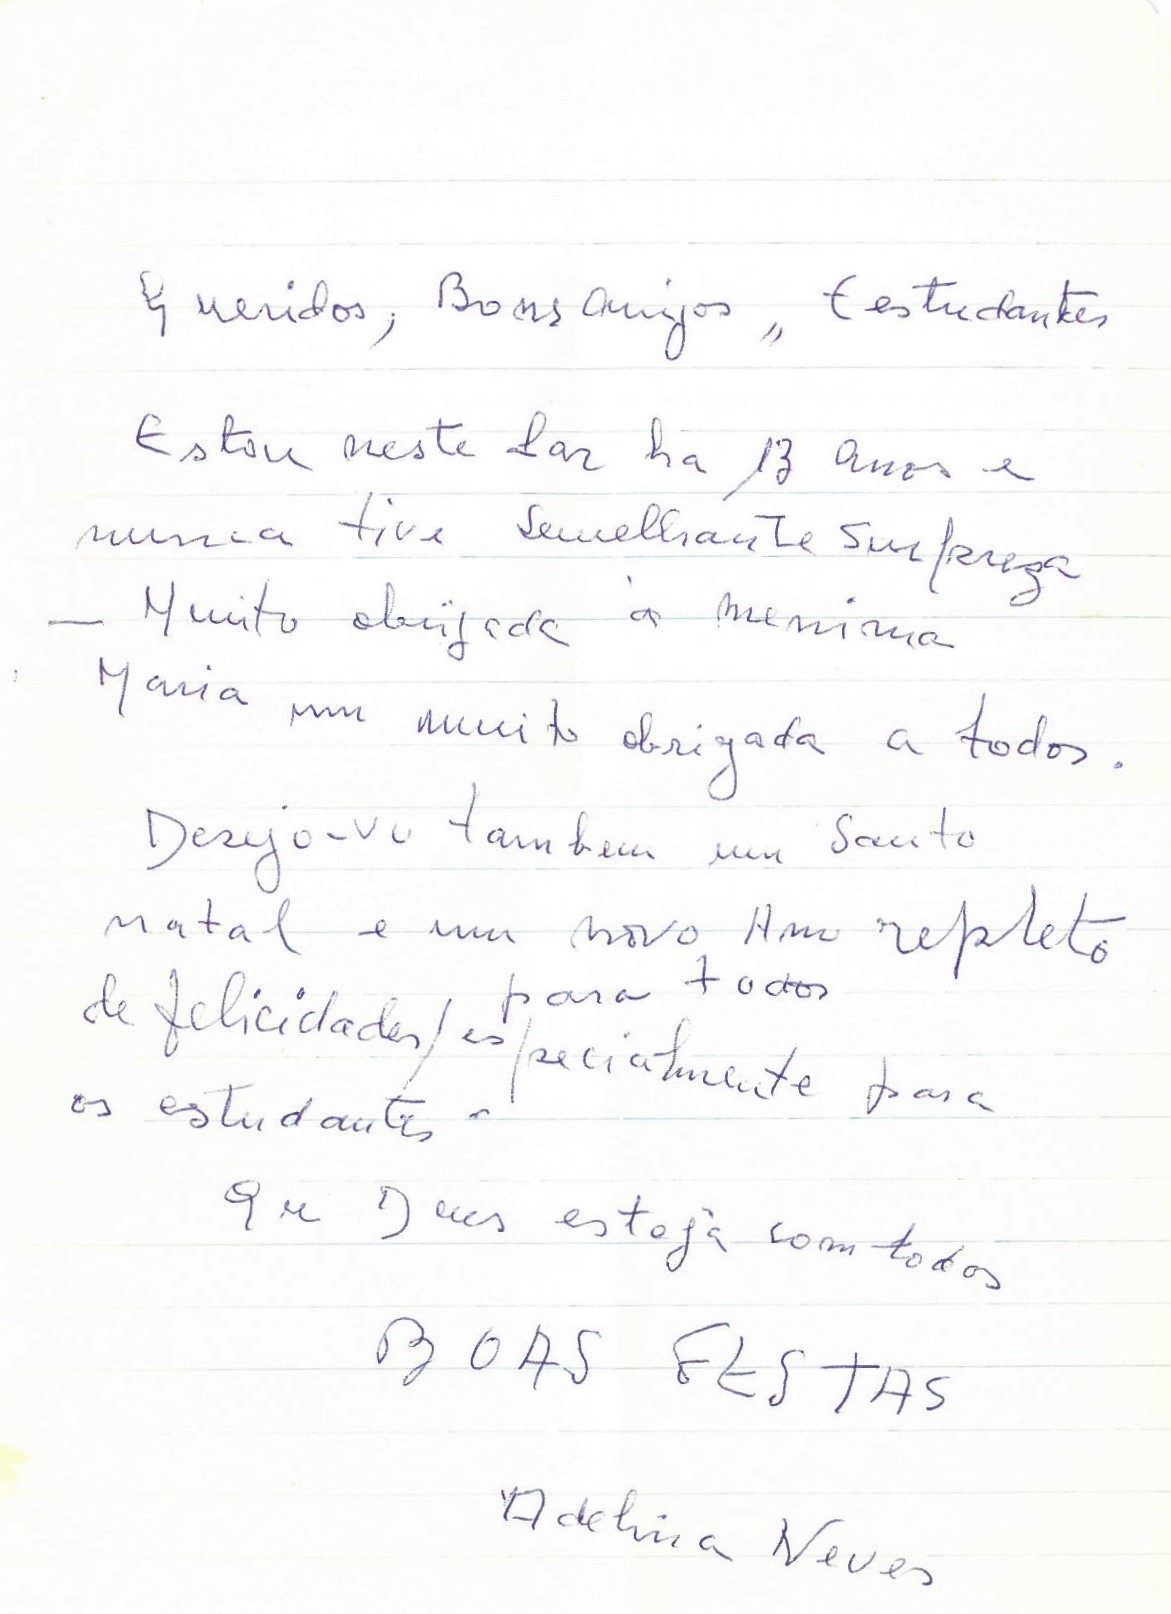 Queridos, Bons Amigos,, E estudantes
Estou neste Lar ha 13 anos e
nunca tive Semelhante Surpreza
— Muito obrigada à menina
Maria um muito obrigada a todos.
Dezejo-vo tambem um Santo
natal e um novo Ano repleto
de felicidades/ para todos
especialmente para
os estudantes.
Que Deus estejà com todos
BOAS FESTAS
Adelina Neves